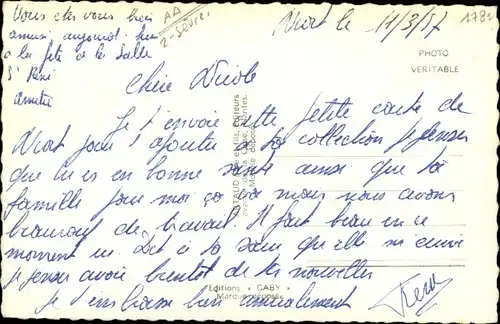 Vous êtes vous bien
amusé aujourd'hui
a la fête de la Salle
St René
Amitié
AA
2-Sèvres
Niort le 11/3/57
PHOTO
VERITABLE
Chère Nicole
Je t'envoie cette petite carte de
Niort pour l'ajouter a ta collection je pense
que tu es en bonne santé ainsi que ta
famille pour moi ça va nous nous avons
beaucoup de travail. Il fait beau en ce
moment ici. Dit à ta sœur qu'elle me écrive
je pense avoir bientôt de tes nouvelles
Je t'embrasse bien amicalement
Editions "GABY"
Marque déposée